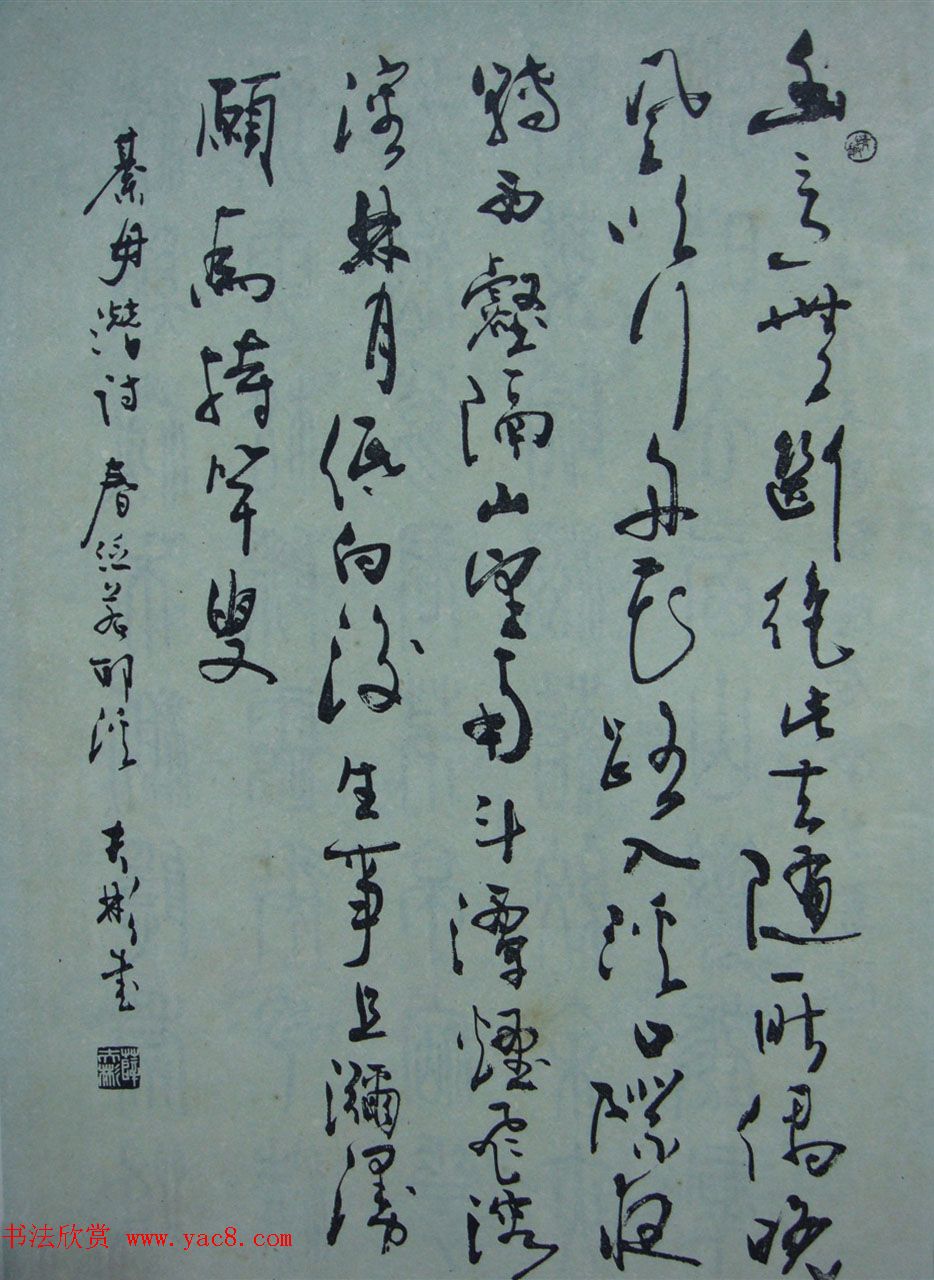 幽意無斷絕此去隨所偶晚
風吹行舟花路入溪口際夜
轉西壑隔山望南斗潭煙飛溶
溶林月低向後生事且瀰漫
願為持竿叟
綦毋潛詩 春泛若耶溪 夫彬書
书法欣赏 www.yac8.com